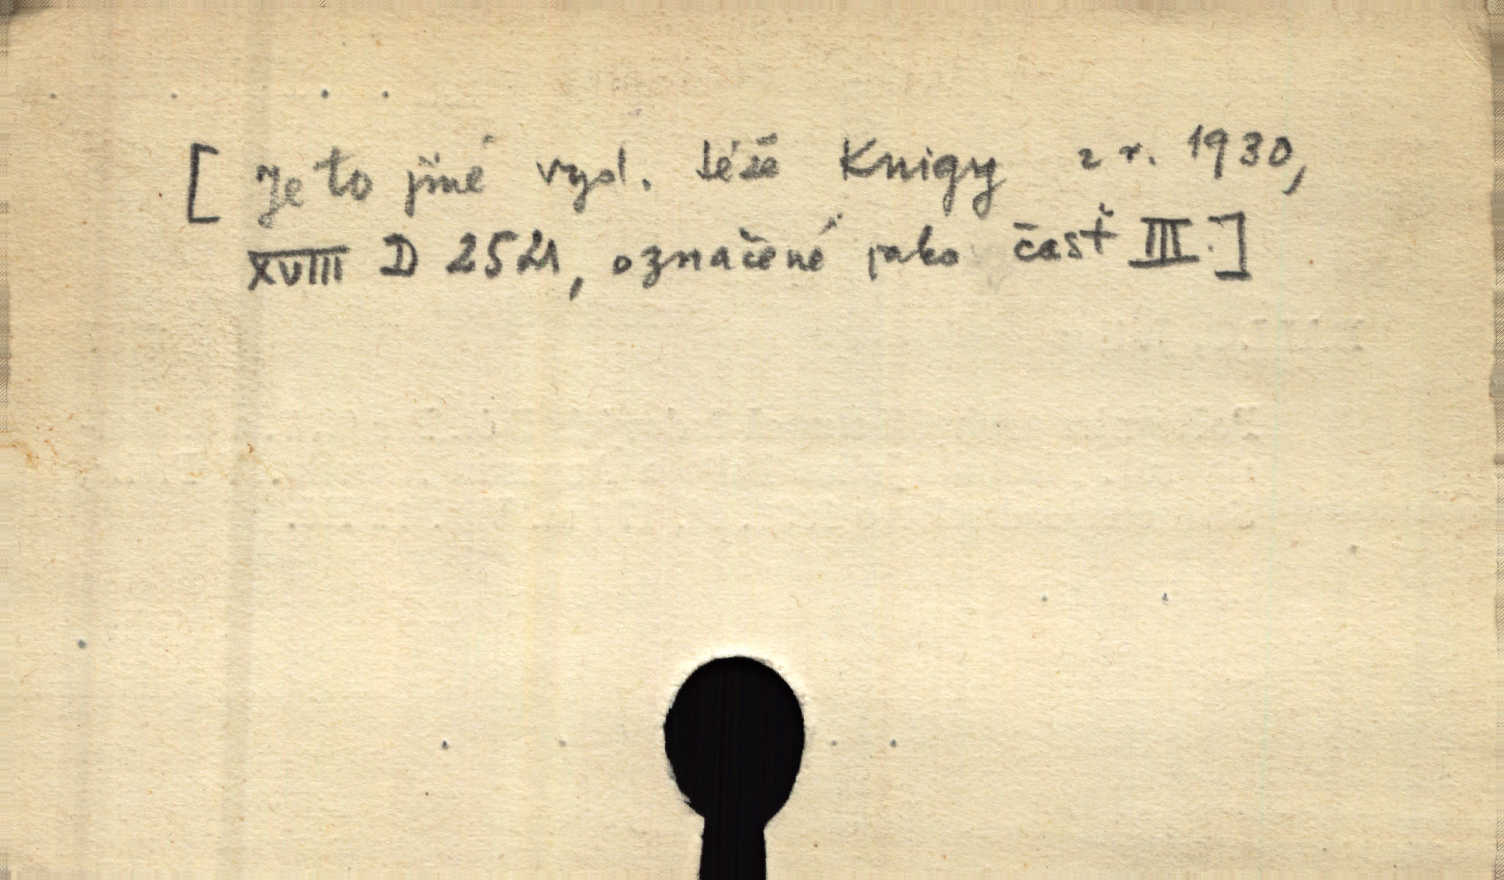 [ Je to jiné vyd. téže Knigy z r. 1930,
XVIII D 2521, označené jako časť III.]